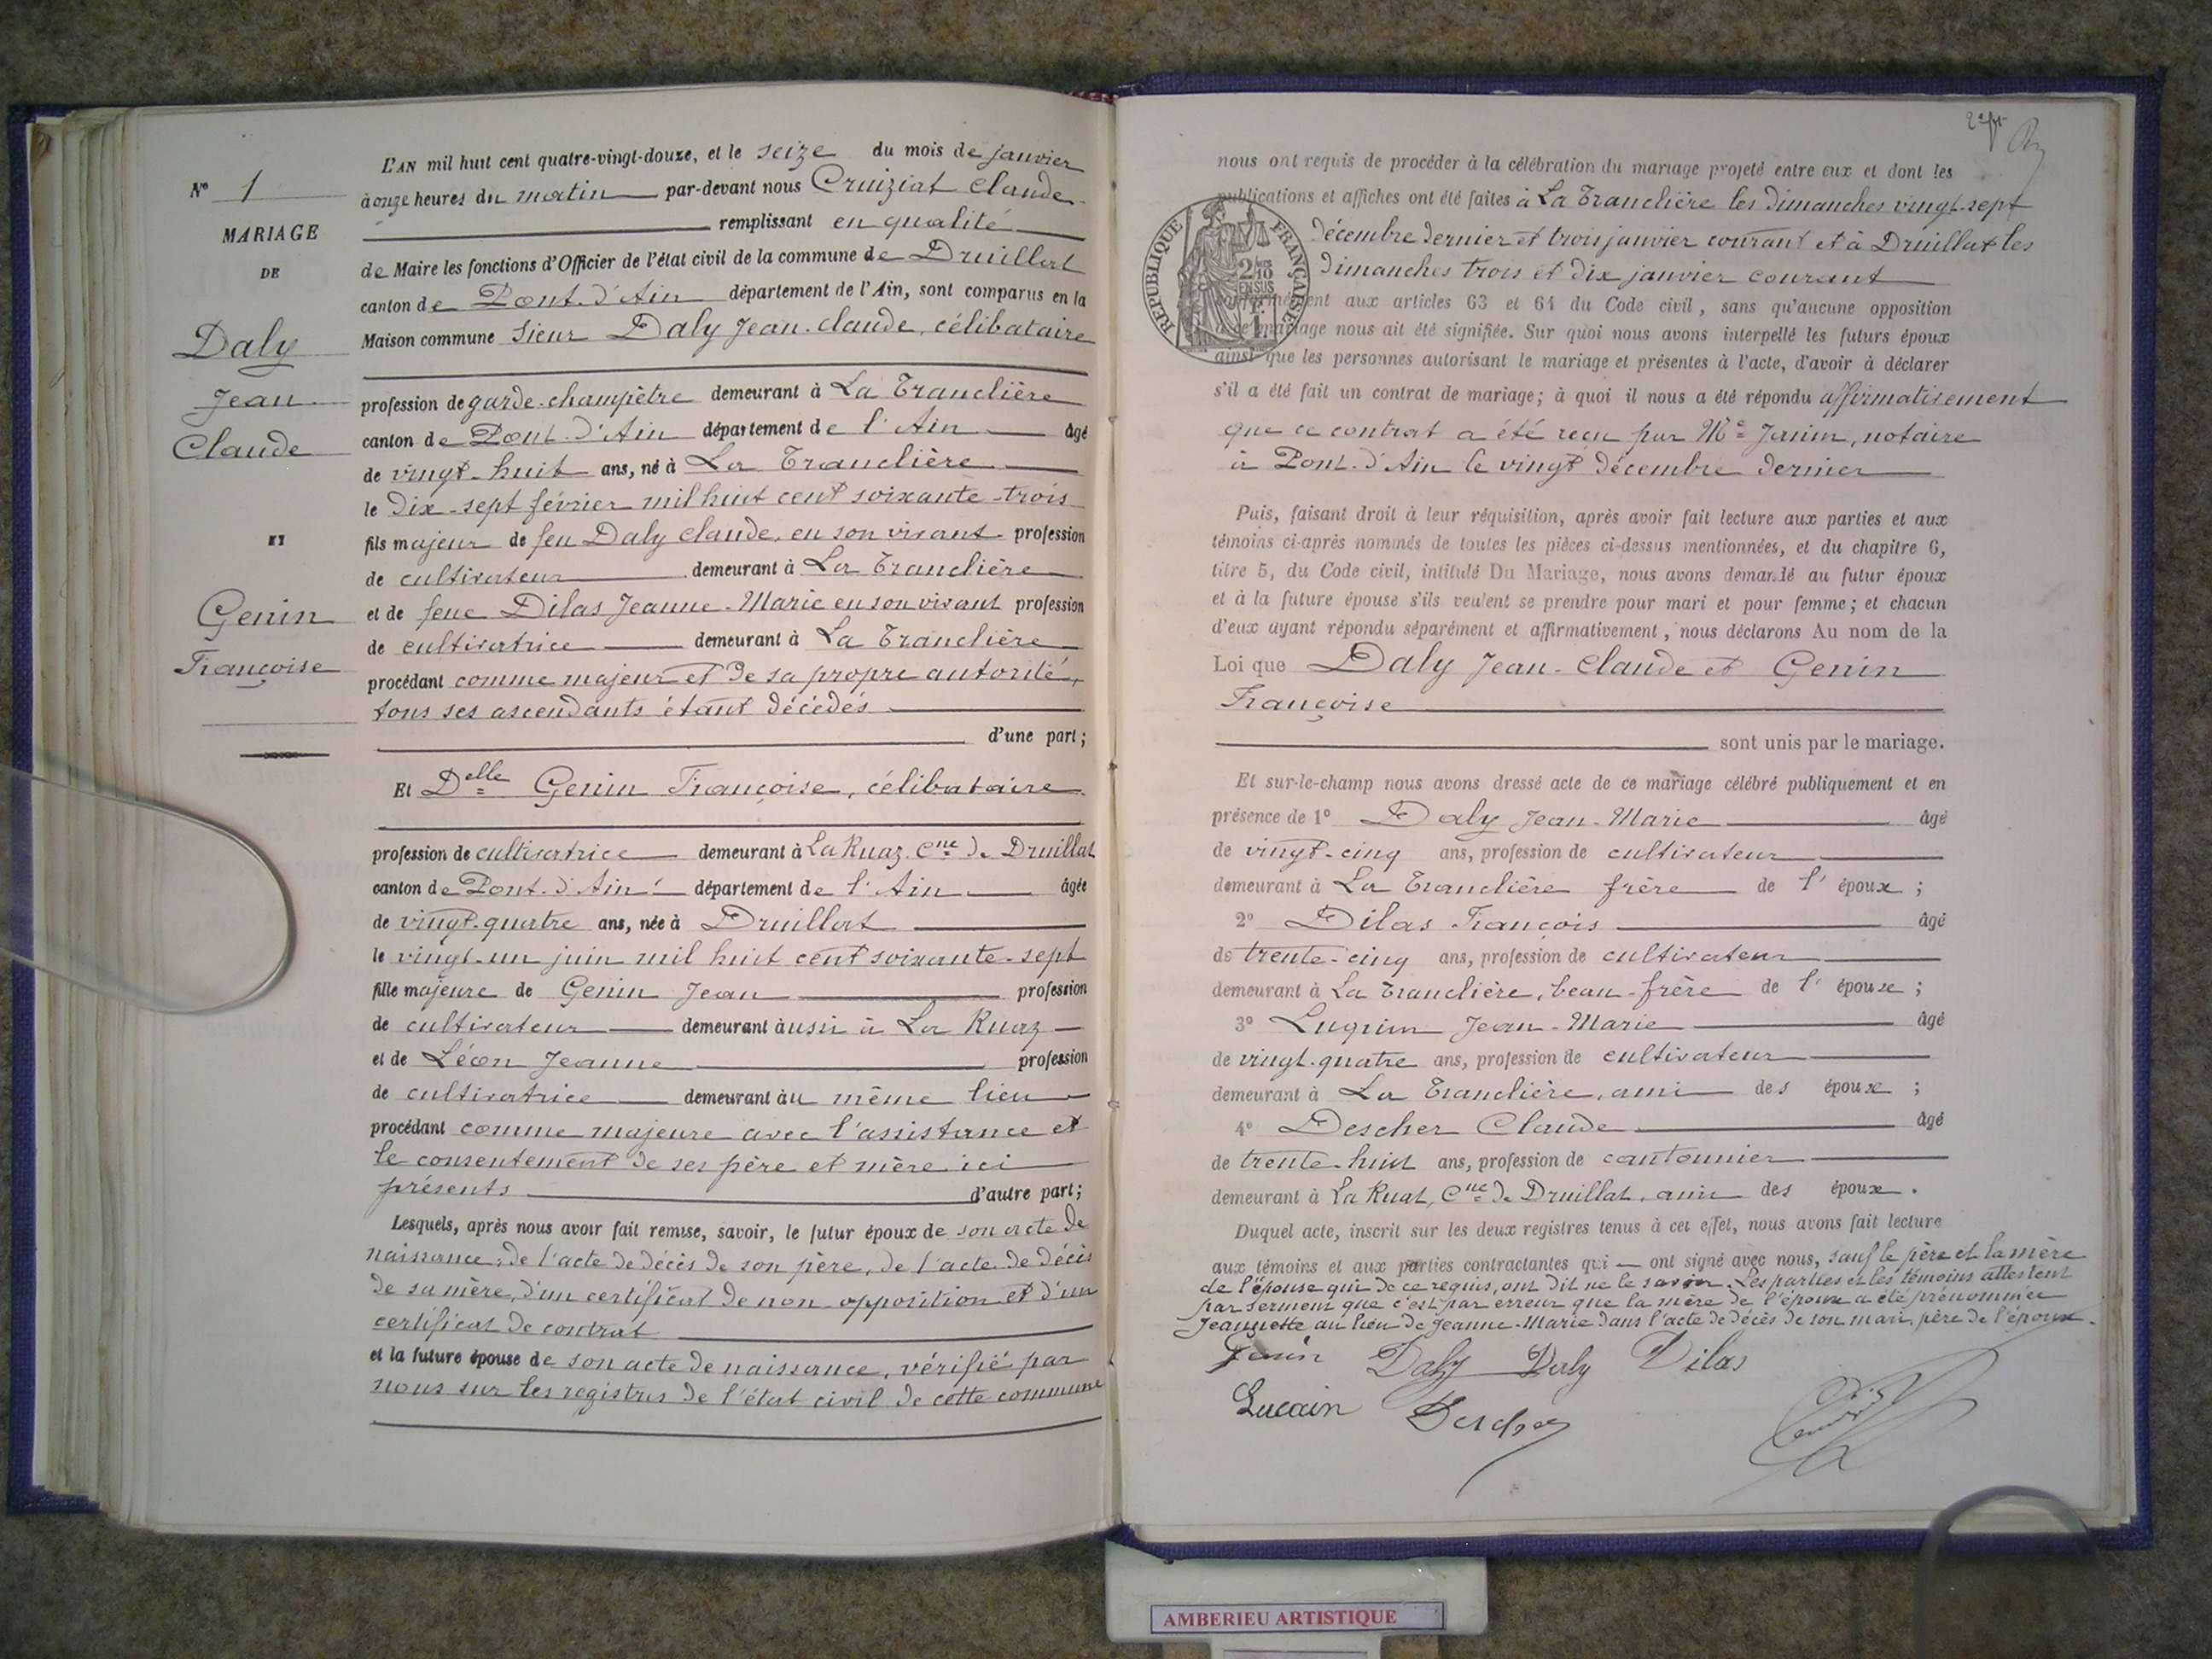 L'AN mil huit cent quatre-vingt-douze, et le seize du mois de janvier
N° 1
à onze heures du matin par-devant nous Cruiziat Claude
remplissant en qualité
MARIAGE
DE
de Maire les fonctions d'Officier de l'état civil de la commune de Druillat
canton de Pont-d'Ain département de l'Ain, sont comparus en la
Daly
Maison commune Sieur Daly Jean-Claude, célibataire
Jean
profession de garde-champêtre demeurant à La Tranclière
Claude
canton de Pont-d'Ain département de l'Ain âgé
de vingt-huit ans, né à La Tranclière
le dix-sept février mil huit cent soixante-trois
ET
fils majeur de feu Daly Claude, en son vivant profession
de cultivateur demeurant à La Tranclière
Genin
et de feue Dilas Jeanne-Marie en son vivant profession
de cultivatrice demeurant à La Tranclière
Françoise
procédant comme majeur et de sa propre autorité,
tous ses ascendants étant décédés
d'une part;
Et Delle Genin Françoise, célibataire
profession de cultivatrice demeurant à La Ruaz Cne de Druillat
canton de Pont-d'Ain département de l'Ain âgée
de vingt-quatre ans, née à Druillat
le vingt-un juin mil huit cent soixante-sept
fille majeure de Genin Jean profession
de cultivateur demeurant aussi à La Ruaz
et de Lécon Jeanne profession
de cultivatrice demeurant au même lieu
procédant comme majeure avec l'assistance et
le consentement de ses père et mère ici
présents d'autre part;
Lesquels, après nous avoir fait remise, savoir, le futur époux de son acte de
naissance, de l'acte de décès de son père, de l'acte de décès
de sa mère, d'un certificat de non-opposition et d'un
certificat de contrat
et la future épouse de son acte de naissance, vérifié par
nous sur les registres de l'état civil de cette commune
nous ont requis de procéder à la célébration du mariage projeté entre eux et dont les
publications et affiches ont été faites à La Tranclière les dimanches vingt-sept
décembre dernier et trois janvier courant et à Druillat les
dimanches trois et dix janvier courant
conformément aux articles 63 et 64 du Code civil, sans qu'aucune opposition
à ce mariage nous ait été signifiée. Sur quoi nous avons interpellé les futurs époux
ainsi que les personnes autorisant le mariage et présentes à l'acte, d'avoir à déclarer
s'il a été fait un contrat de mariage; à quoi il nous a été répondu affirmativement
que ce contrat a été reçu par Me Janin, notaire
à Pont-d'Ain le vingt décembre dernier
RÉPUBLIQUE FRANÇAISE
Puis, faisant droit à leur réquisition, après avoir fait lecture aux parties et aux
témoins ci-après nommés de toutes les pièces ci-dessus mentionnées, et du chapitre 6,
titre 5, du Code civil, intitulé Du Mariage, nous avons demandé au futur époux
et à la future épouse s'ils veulent se prendre pour mari et pour femme; et chacun
d'eux ayant répondu séparément et affirmativement, nous déclarons Au nom de la
Loi que Daly Jean-Claude et Genin
Françoise
sont unis par le mariage.
Et sur-le-champ nous avons dressé acte de ce mariage célébré publiquement et en
présence de 1° Daly Jean-Marie âgé
de vingt-cinq ans, profession de cultivateur
demeurant à La Tranclière frère de l'époux;
2° Dilas François âgé
de trente-cinq ans, profession de cultivateur
demeurant à La Tranclière, beau-frère de l'épouse;
3° Luquin Jean-Marie âgé
de vingt-quatre ans, profession de cultivateur
demeurant à La Tranclière, ami des époux;
4° Descher Claude âgé
de trente-huit ans, profession de cantonnier
demeurant à La Ruat, Cne de Druillat, ami des époux.
Duquel acte, inscrit sur les deux registres tenus à cet effet, nous avons fait lecture
aux témoins et aux parties contractantes qui ont signé avec nous, sauf le père et la mère
de l'épouse qui de ce requis, ont dit ne le savoir. Les parties et les témoins attestent
par serment que c'est par erreur que la mère de l'époux a été prénommée
Jeannette au lieu de Jeanne-Marie dans l'acte de décès de son mari, père de l'époux.
Genin Daly Daly Dilas
Descher
AMBERIEU ARTISTIQUE